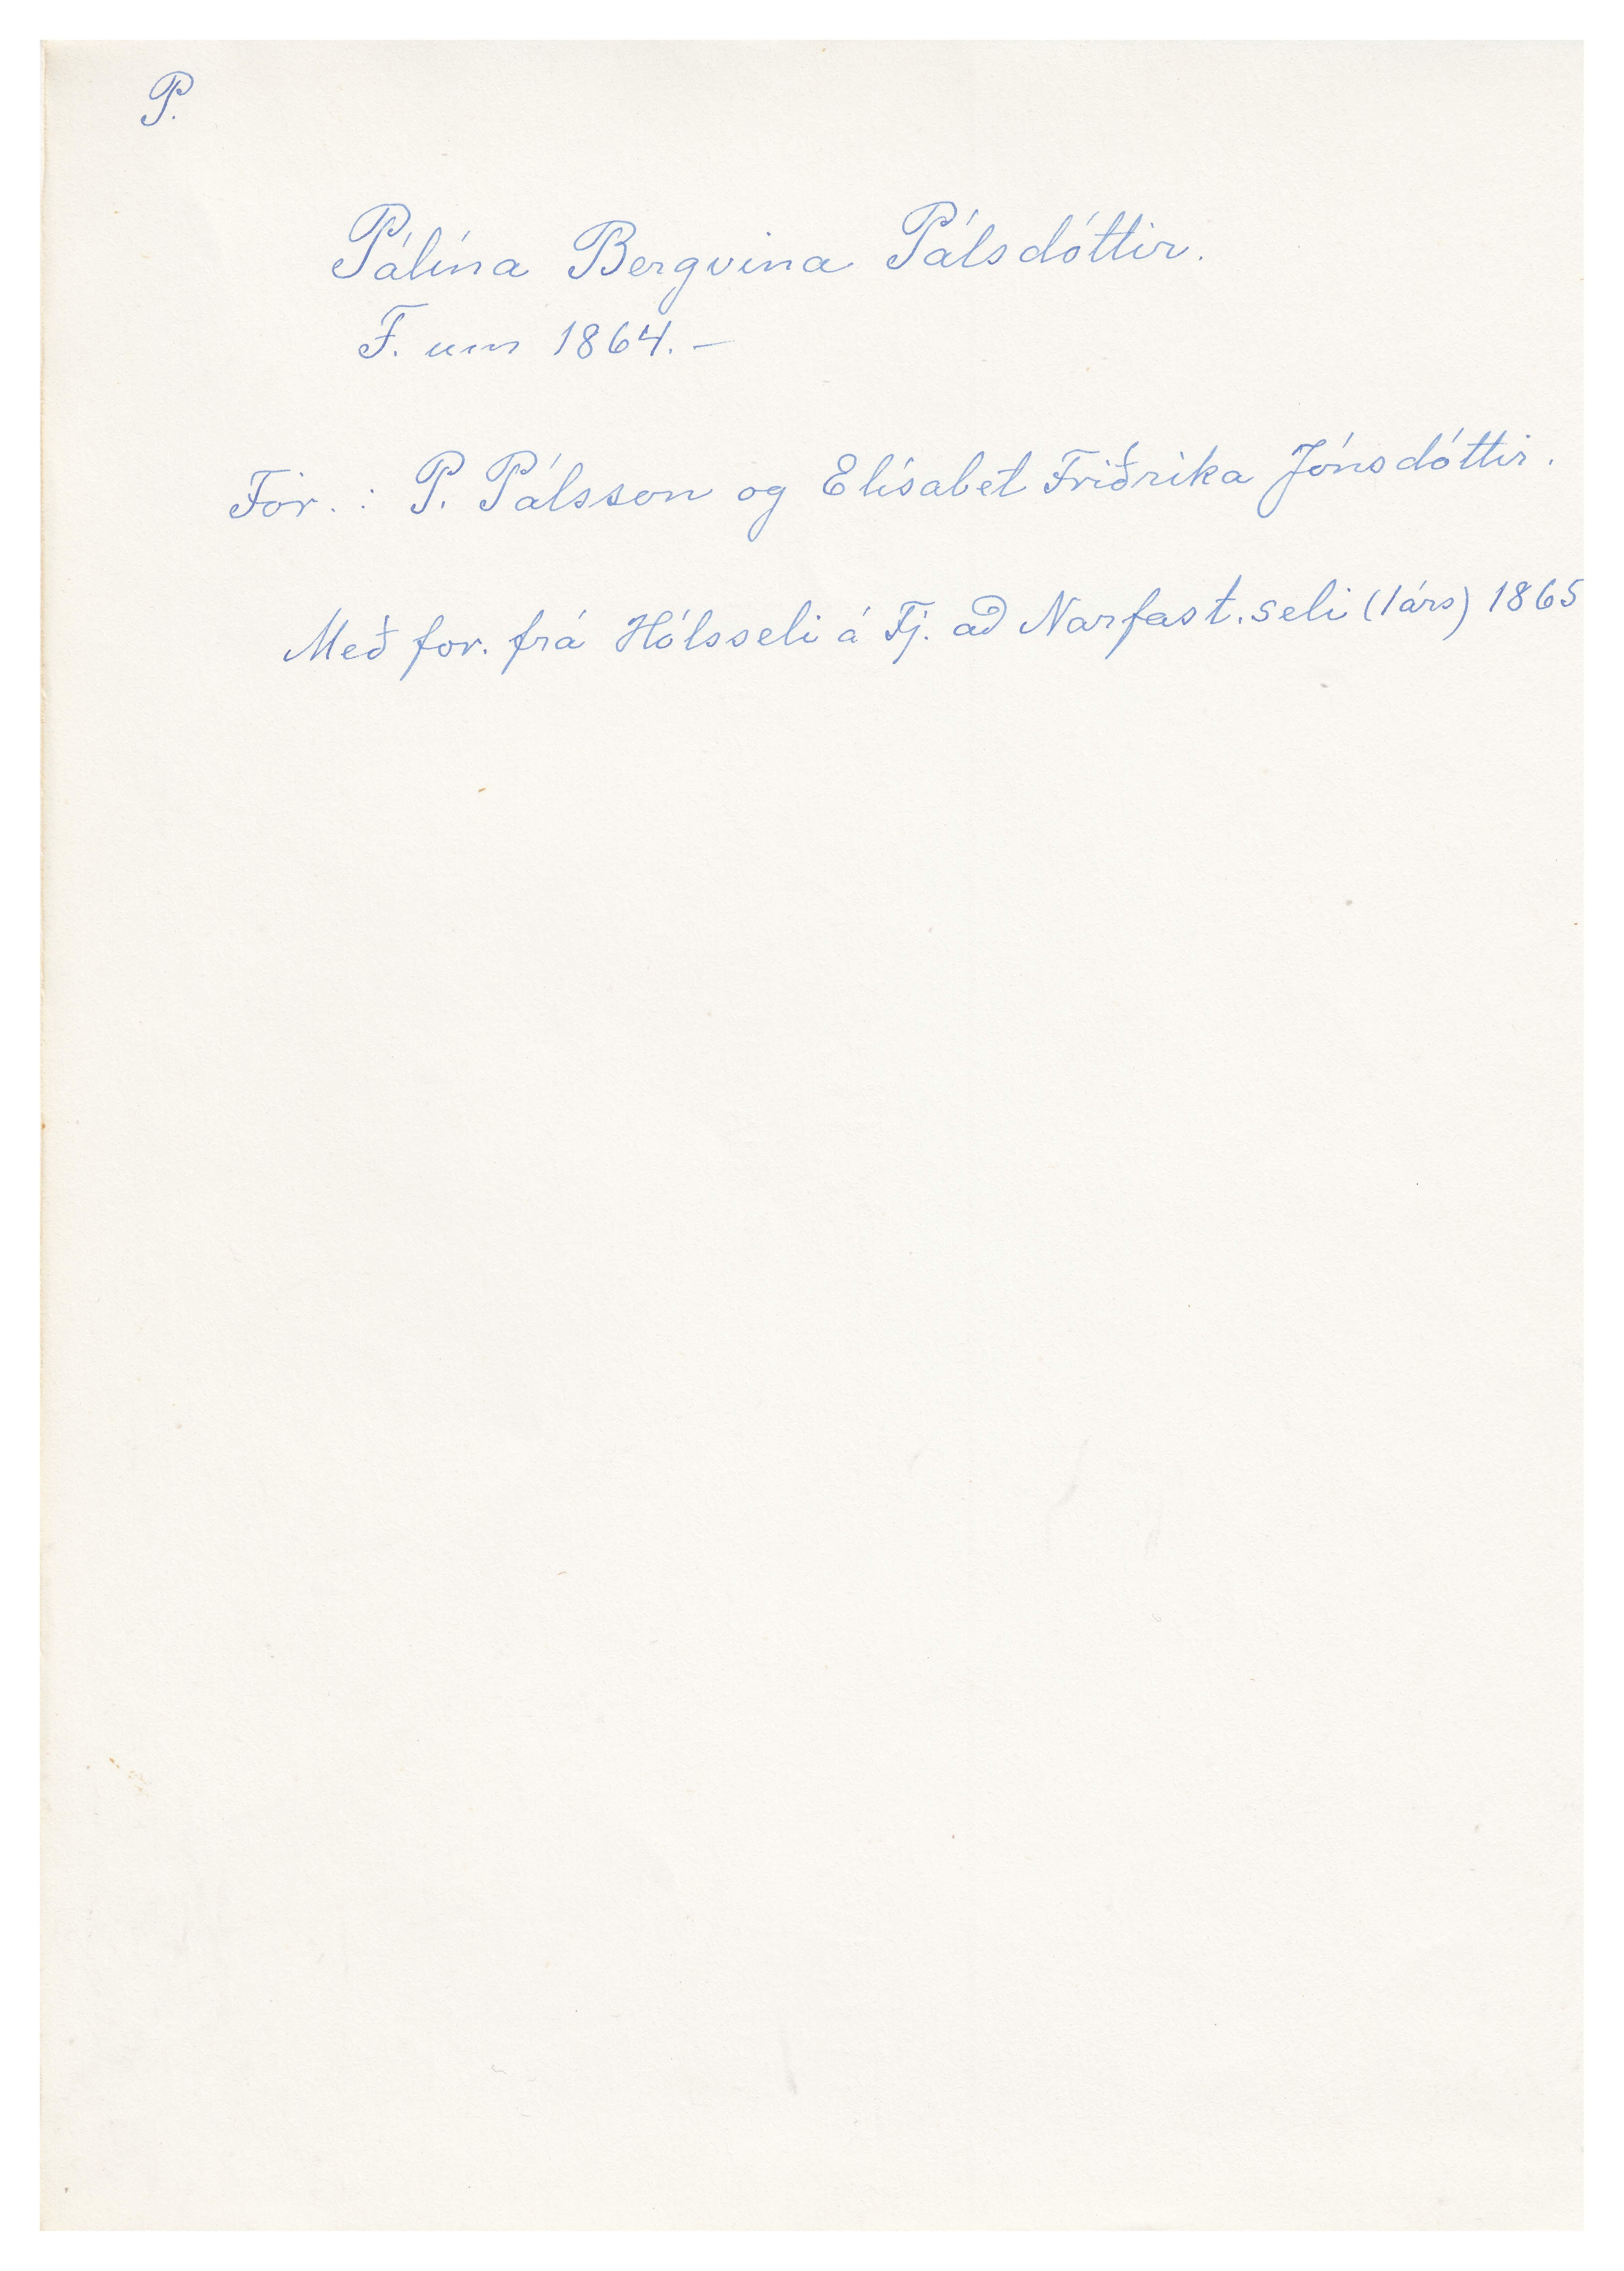 P.
Pálína Bergvina Pálsdóttir.
F. um 1864. –
For. : P. Pálsson og Elísabet Friðrika Jónsdóttir.
Með for. frá Hólsseli á Fj. að Narfast.seli (1árs) 1865